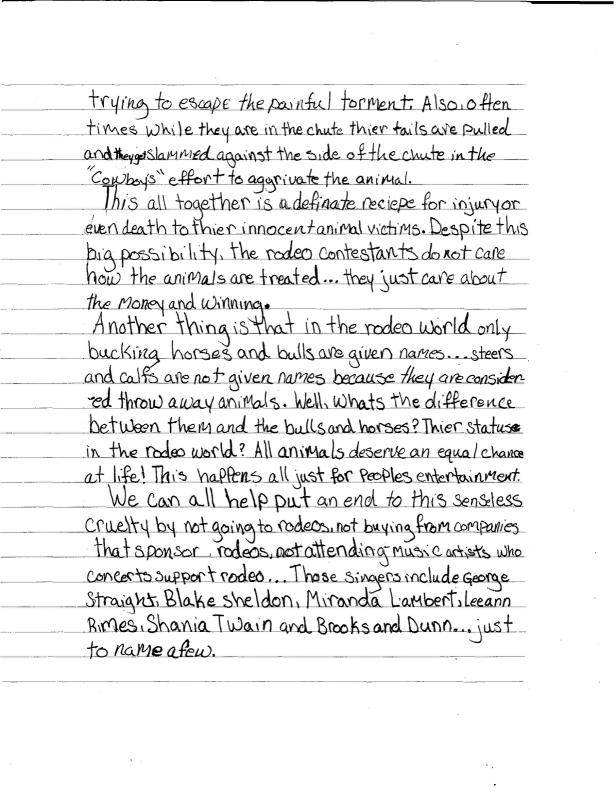 trying to escape the painful torment. Also, often
times while they are in the chute thier tails are pulled
and they get slammed against the side of the chute in the
"Cowboys" effort to aggrivate the animal.
This all together is a definate reciepe for injury or
even death to thier innocent animal victims. Despite this
big possibility, the rodeo contestants do not care
how the animals are treated... they just care about
the money and winning.
Another thing is that in the rodeo world only
bucking horses and bulls are given names... steers
and calfs are not given names because they are consider-
ed throw away animals. Well, whats the difference
between them and the bulls and horses? Thier statuse
in the rodeo world? All animals deserve an equal chance
at life! This happens all just for peoples entertainment.
We can all help put an end to this senseless
cruelty by not going to rodeos, not buying from companies
that sponsor rodeos, not attending music artists who
concerts support rodeo... Those singers include George
Straight, Blake Sheldon, Miranda Lambert, Leeann
Rimes, Shania Twain and Brooks and Dunn... just
to name a few.